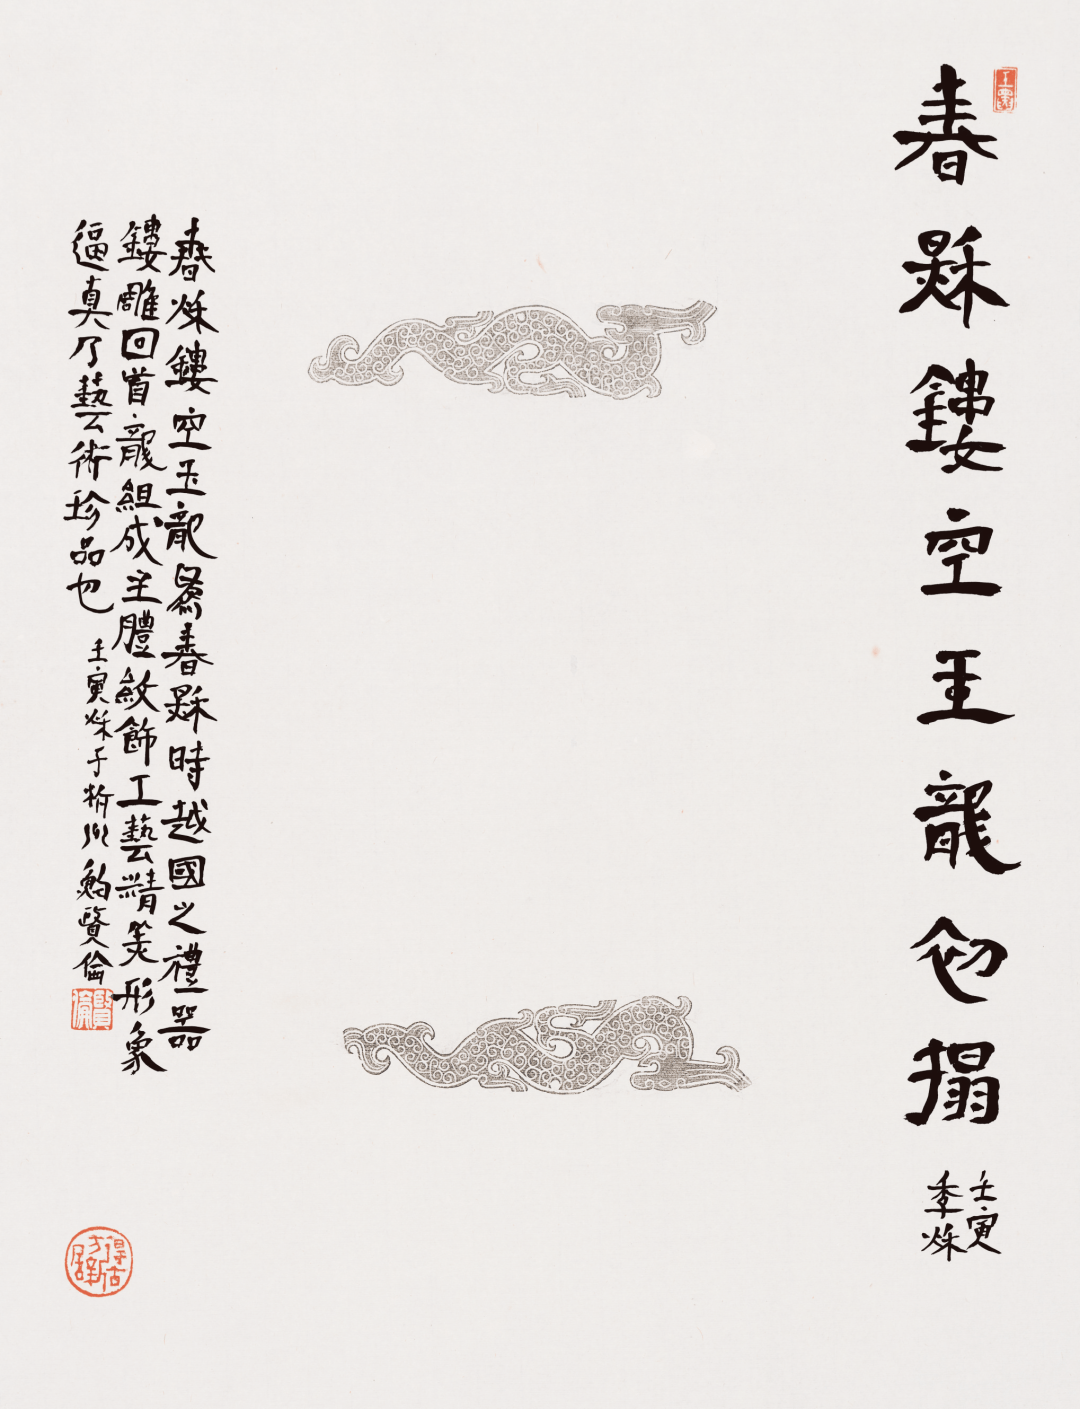 壬寅
春秋鏤空玉龍初搨
壬寅
季秋
春秋鏤空玉龍爲春秋時越國之禮器
鏤雕回首龍組成主體紋飾工藝精美形象
逼真乃藝術珍品也 壬寅秋于杭州鮑賢倫
賢倫